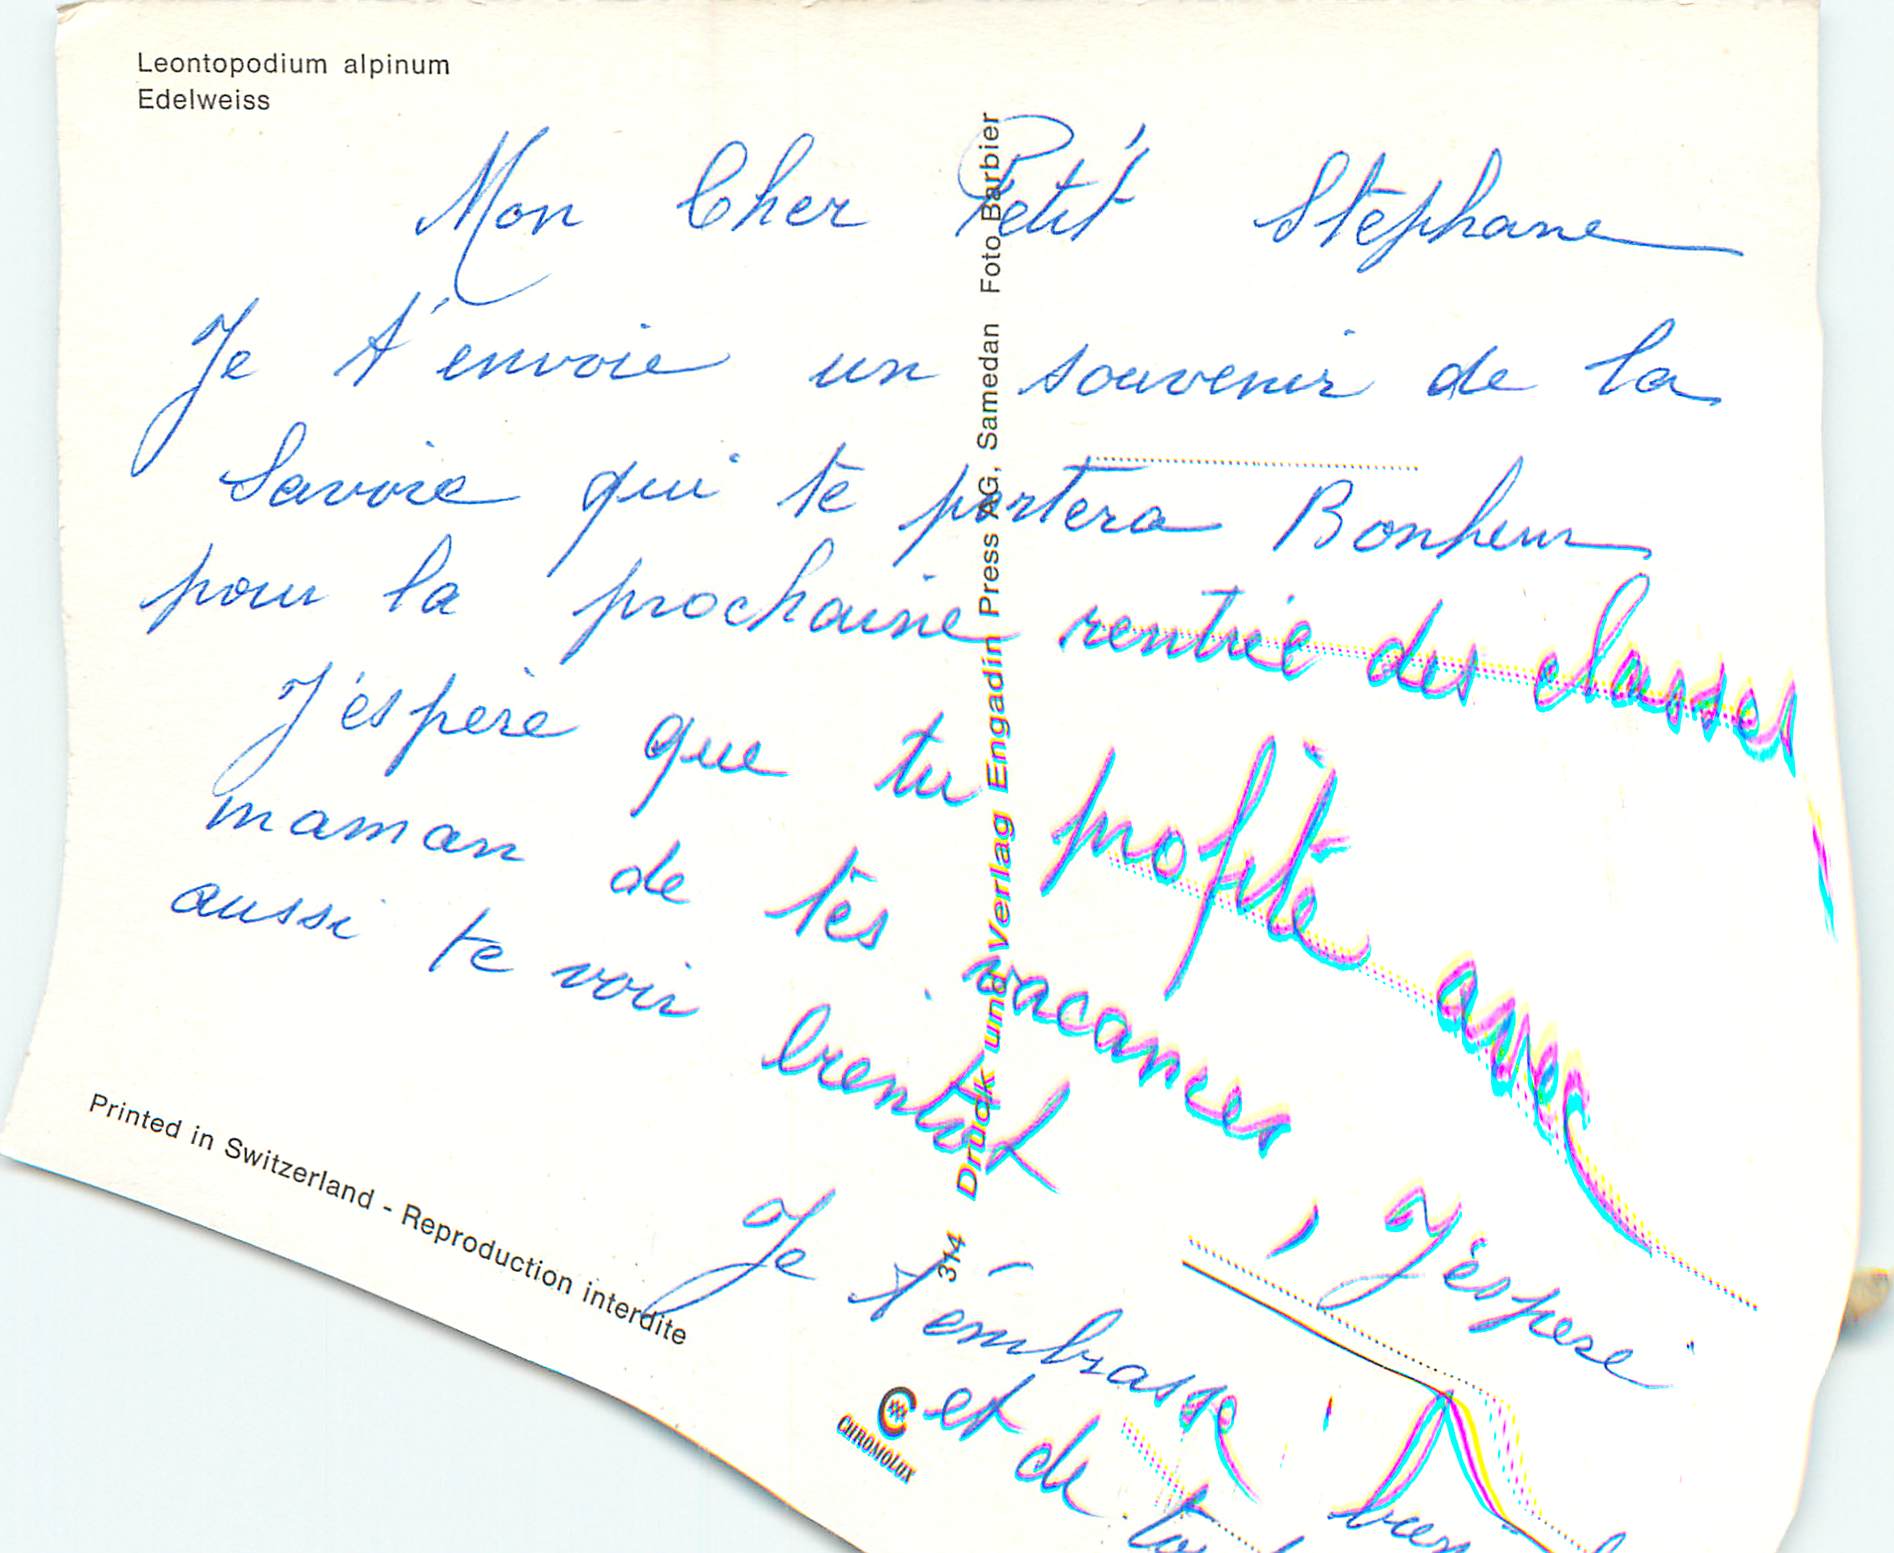 Leontopodium alpinum
Edelweiss
Mon Cher Petit Stéphane
Je t'envoie un souvenir de la
Savoie qui te portera Bonheur
pour la prochaine rentrée des classes
J'éspère que tu profite avec
maman de tes vacances, J'éspère
aussi te voir bientôt
Je t'embrasse bien
et de
Printed in Switzerland - Reproduction interdite
314 Druck und Verlag Engadin Press AG, Samedan Foto Barbier
CHROMOLUX